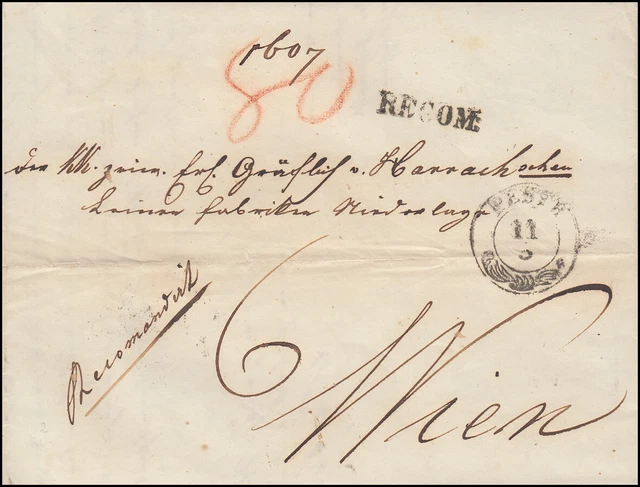 1607
80
RECOM:
Der KK. priv. Erl. Gräflich v. Harrachschen
Leinen Fabriken Niederlage
PESTH
11
5
Recomandirt
Wien